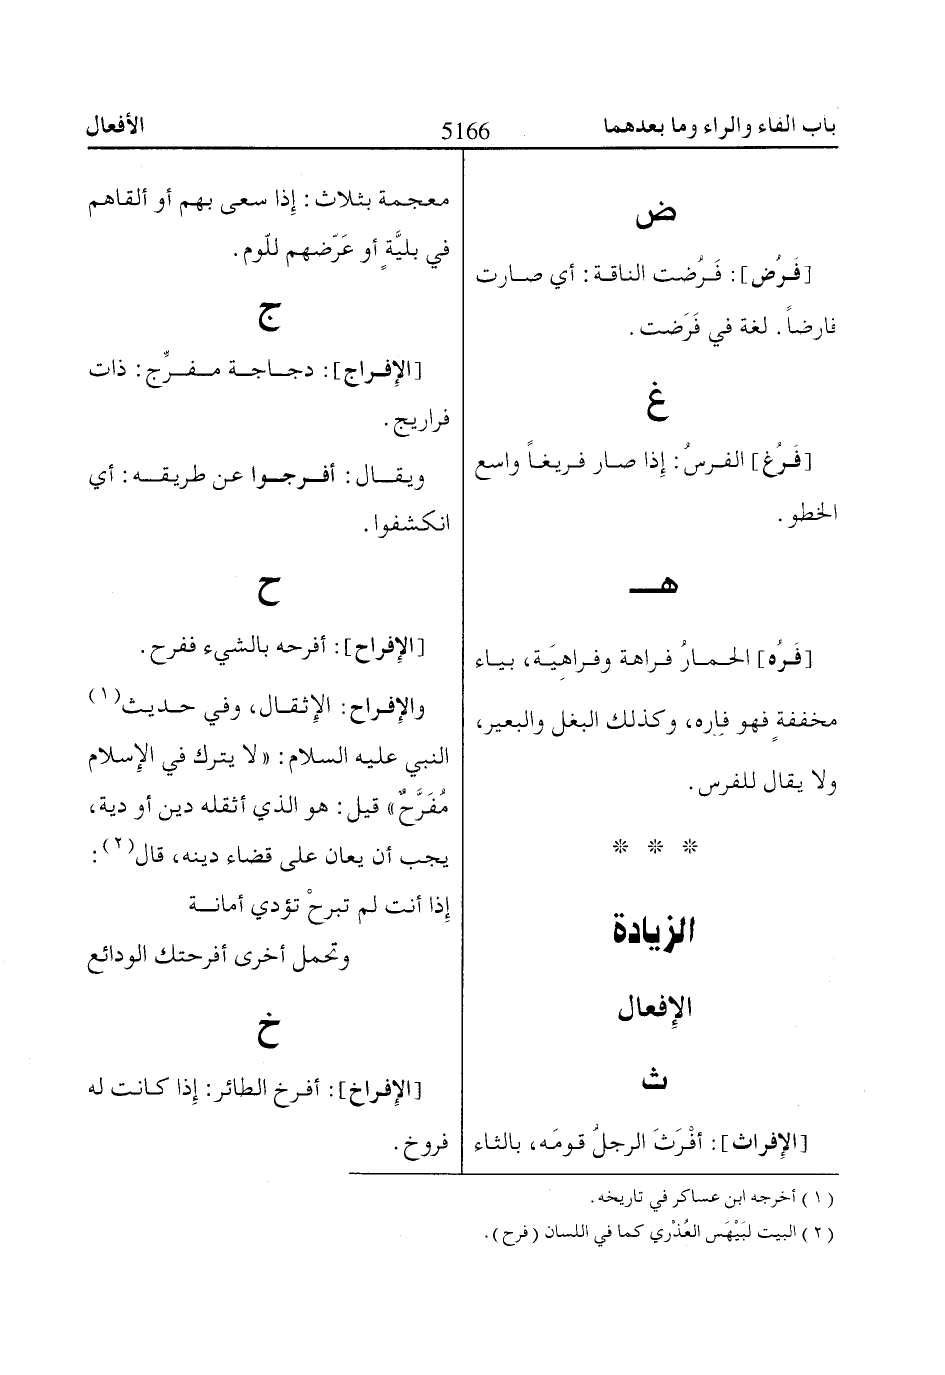 باب الفاء والراء وما بعدهما 5166 الأفعال
ض
[فَرُض]: فَرُضت الناقة: أي صارت
فارضاً. لغة في فَرَضت.
غ
[فَرُغ] الفرسُ: إذا صار فريغاً واسع
الخطو.
هـ
[فَرُه] الحمارُ فراهة وفراهِيَة، بياء
مخففةٍ فهو فارِه، وكذلك البغل والبعير،
ولا يقال للفرس.
* * *
الزيادة
الإفعال
ث
[الإفراث]: أفْرَثَ الرجلُ قومَه، بالثاء
معجمة بثلاث: إذا سعى بهم أو ألقاهم
في بليَّةٍ أو عَرّضهم للّوم.
ج
[الإفراج]: دجاجة مفرِّج: ذات
فراريج.
ويقال: أفرجوا عن طريقه: أي
انكشفوا.
ح
[الإفراح]: أفرحه بالشيء ففرح.
والإفراح: الإثقال، وفي حديث(١)
النبي عليه السلام: «لا يترك في الإسلام
مُفَرَّحٌ» قيل: هو الذي أثقله دين أو دية،
يجب أن يعان على قضاء دينه، قال(٢):
إذا أنت لم تبرحْ تؤدي أمانة
وتحمل أخرى أفرحتك الودائع
خ
[الإفراخ]: أفرخ الطائر: إذا كانت له
فروخ.
(١) أخرجه ابن عساكر في تاريخه.
(٢) البيت لبَيْهَس العُذْري كما في اللسان (فرح).